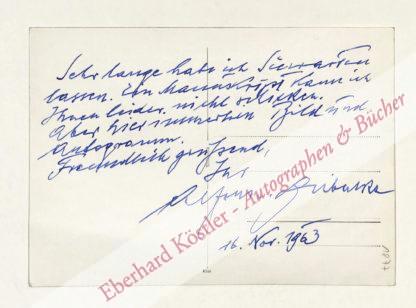 Sehr lange habe ich Sie warten
lassen. Ein Manuskript kann ich
Ihnen leider nicht schicken.
Aber hier immerhin Bild und
Autogramm.
Freundlich grüßend,
Ihr
Alfons Czibulka
16. Nov. 1963
Eberhard Köstler - Autographen & Bücher